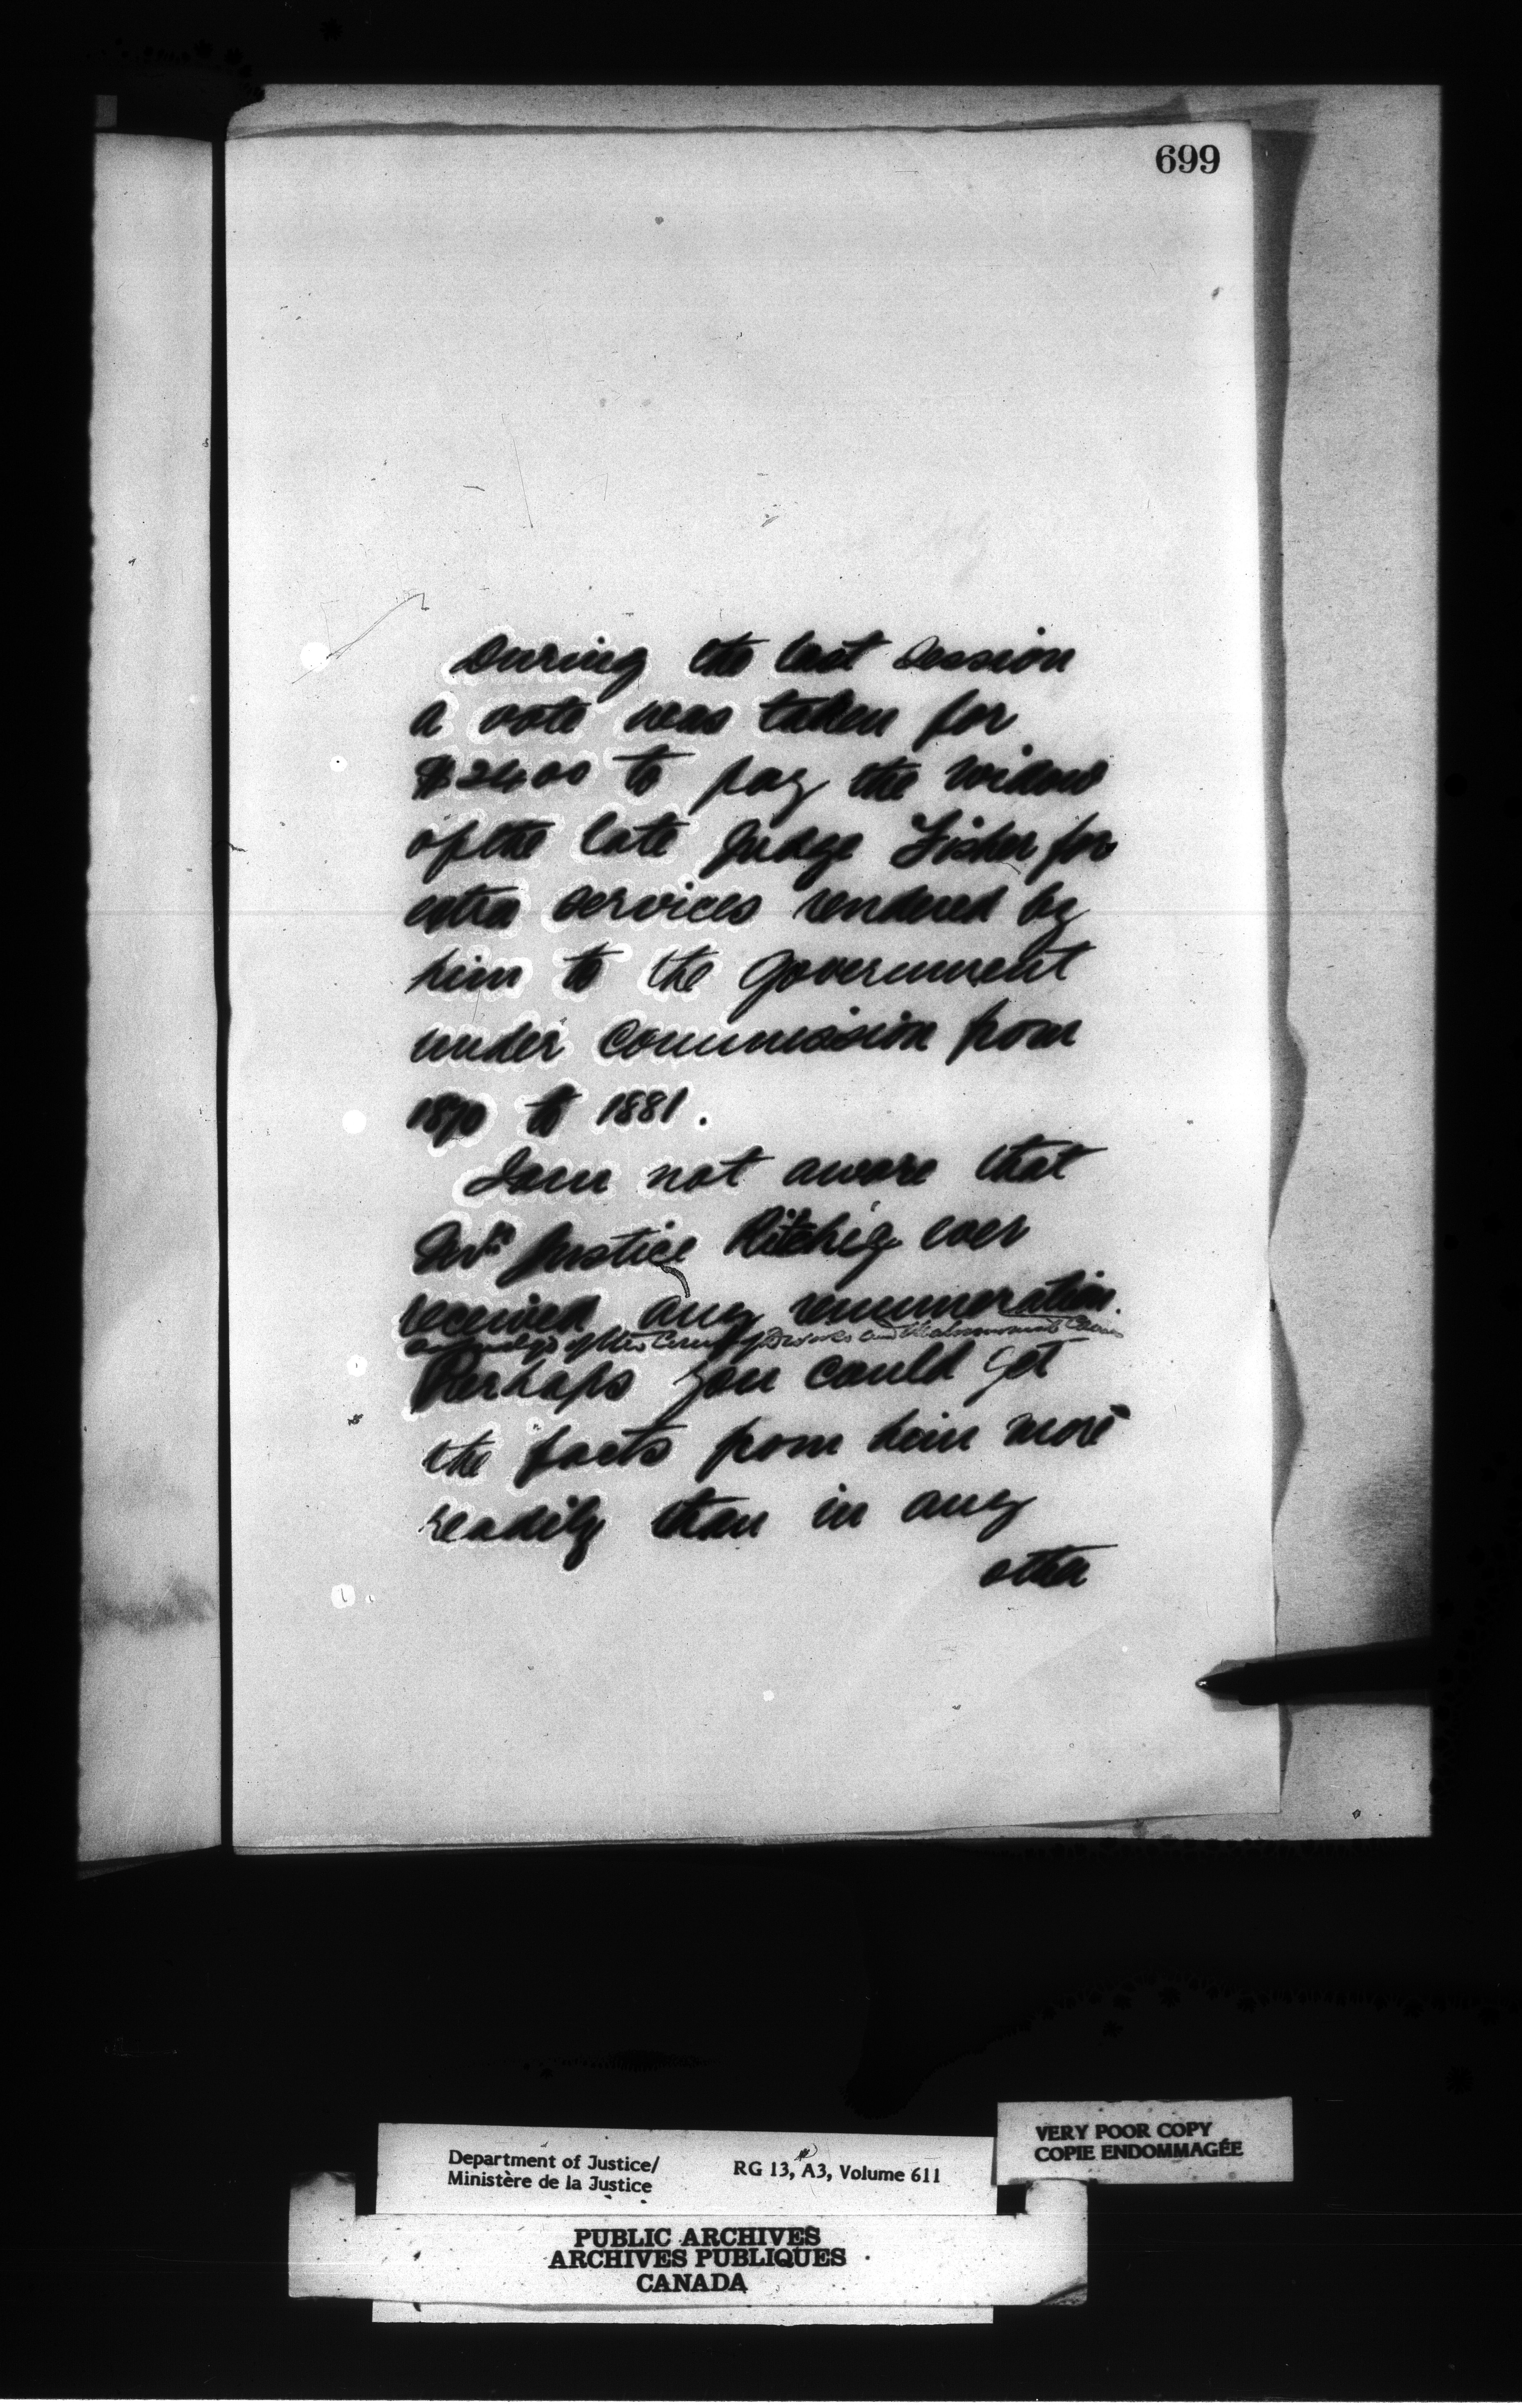 699
During the last Session
a vote was taken for
$2400 to pay the widow
of the late Judge Fisher for
extra services rendered by
him to the Government
under Commission from
1870 to 1881.
I am not aware that
Mr Justice Ritchie ever
received any remuneration.
as Judge of the Court of Divorce and Matrimonial Causes
Perhaps you could get
the facts from him more
readily than in any
other
Department of Justice/
Ministère de la Justice
RG 13, A3, Volume 611
VERY POOR COPY
COPIE ENDOMMAGÉE
PUBLIC ARCHIVES
ARCHIVES PUBLIQUES
CANADA